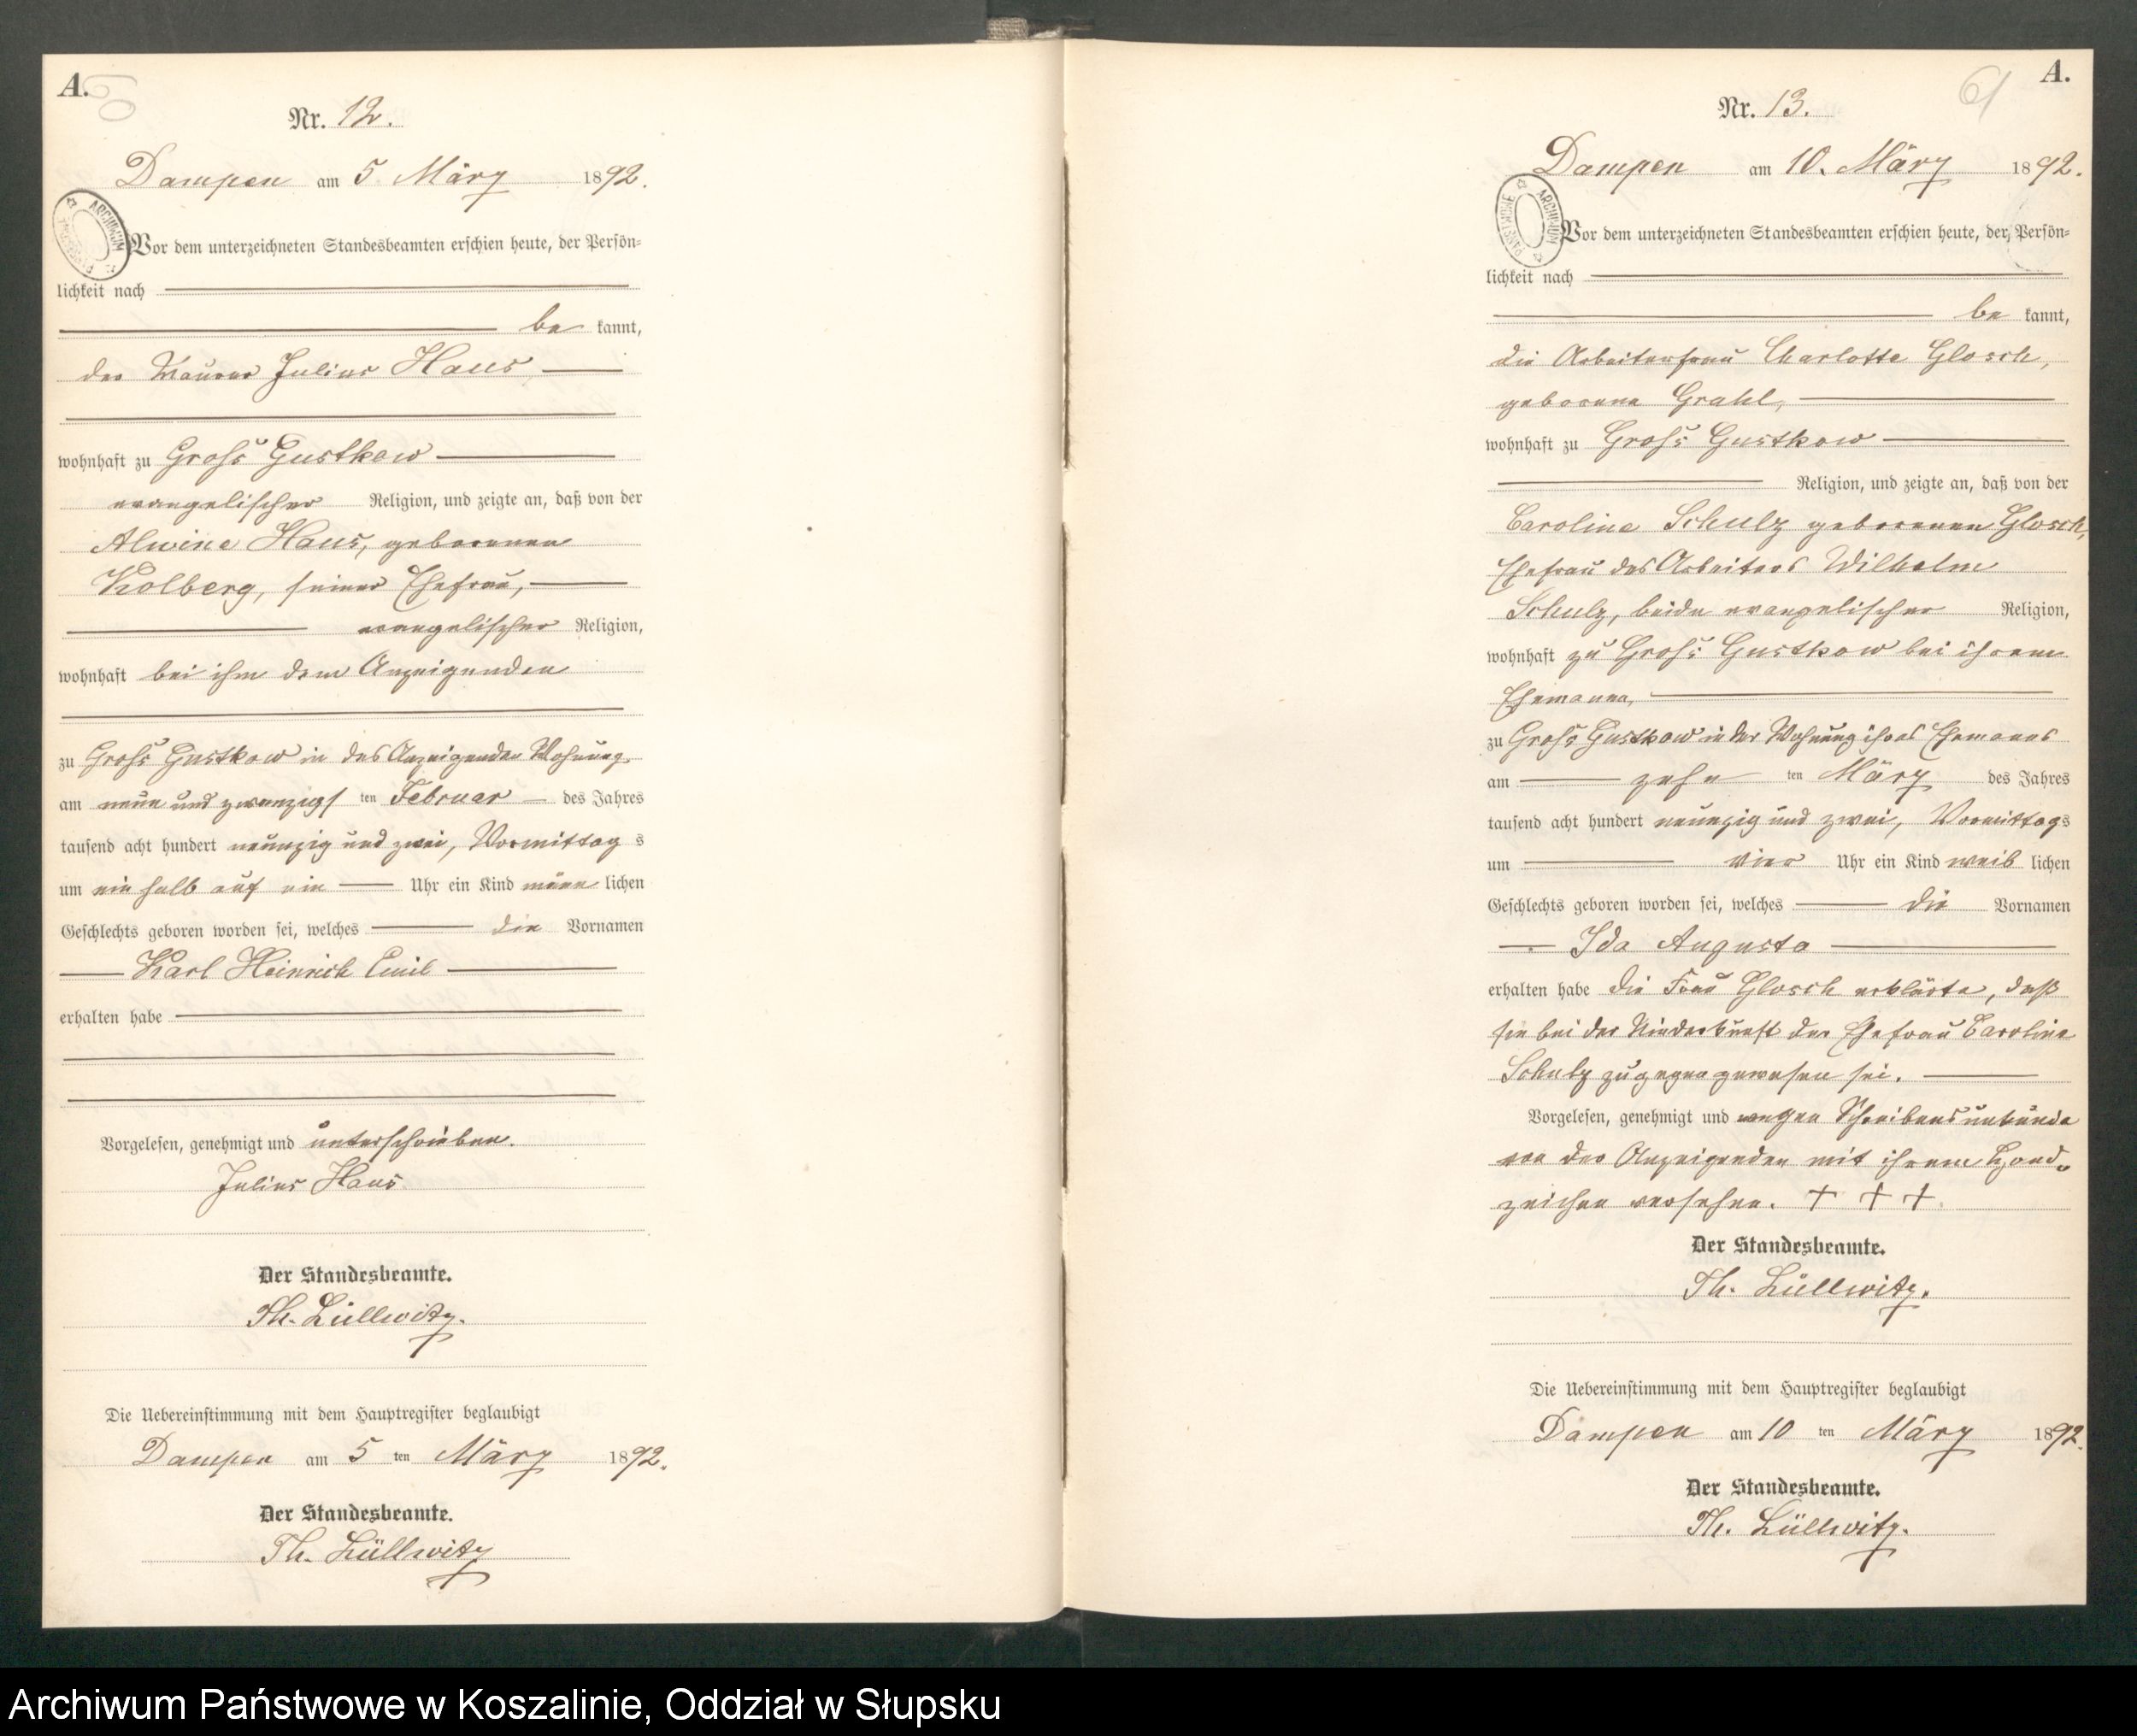 A.
60
Nr. 12.
Dampen am 5. März 1892.
Vor dem unterzeichneten Standesbeamten erschien heute, der Persön=
lichkeit nach
be kannt,
der Maurer Julius Haus,
wohnhaft zu Groß Gustkow
evangelischer Religion, und zeigte an, daß von der
Alwine Haus, geborenen
Kolberg, seiner Ehefrau,
evangelischer Religion,
wohnhaft bei ihm dem Anzeigenden
zu Groß Gustkow in des Anzeigenden Wohnung
am neun und zwanzigs ten Februar des Jahres
tausend acht hundert neunzig und zwei, Vormittag s
um ein halb auf ein Uhr ein Kind männ lichen
Geschlechts geboren worden sei, welches die Vornamen
Karl Heinrich Emil
erhalten habe
Vorgelesen, genehmigt und unterschrieben.
Julius Haus
Der Standesbeamte.
Th. Lüllwitz.
Die Uebereinstimmung mit dem Hauptregister beglaubigt
Dampen am 5 ten März 1892.
Der Standesbeamte.
Th. Lüllwitz
A.
61
Nr. 13.
Dampen am 10. März 1892.
ARCHIWUM PAŃSTWOWE
Vor dem unterzeichneten Standesbeamten erschien heute, der Persön=
lichkeit nach
be kannt,
die Arbeiterfrau Charlotte Glosch,
geborene Grahl,
wohnhaft zu Groß Gustkow
Religion, und zeigte an, daß von der
Caroline Schulz geborenen Glosch,
Ehefrau des Arbeiters Wilhelm
Schulz, beide evangelischer Religion,
wohnhaft zu Groß Gustkow bei ihrem
Ehemanne,
zu Groß Gustkow in der Wohnung ihres Ehemannes
am zehn ten März des Jahres
tausend acht hundert neunzig und zwei, Vormittags
um vier Uhr ein Kind weib lichen
Geschlechts geboren worden sei, welches die Vornamen
Ida Augusta
erhalten habe die Frau Glosch erklärte, daß
sie bei der Niederkunft der Ehefrau Caroline
Schulz zugegen gewesen sei.
Vorgelesen, genehmigt und wegen Schreibensunkunde
von der Anzeigenden mit ihrem Hand=
zeichen versehen. + + +
Der Standesbeamte.
Th. Lüllwitz.
Die Uebereinstimmung mit dem Hauptregister beglaubigt
Dampen am 10 ten März 1892.
Der Standesbeamte.
Th. Lüllwitz.
Archiwum Państwowe w Koszalinie, Oddział w Słupsku